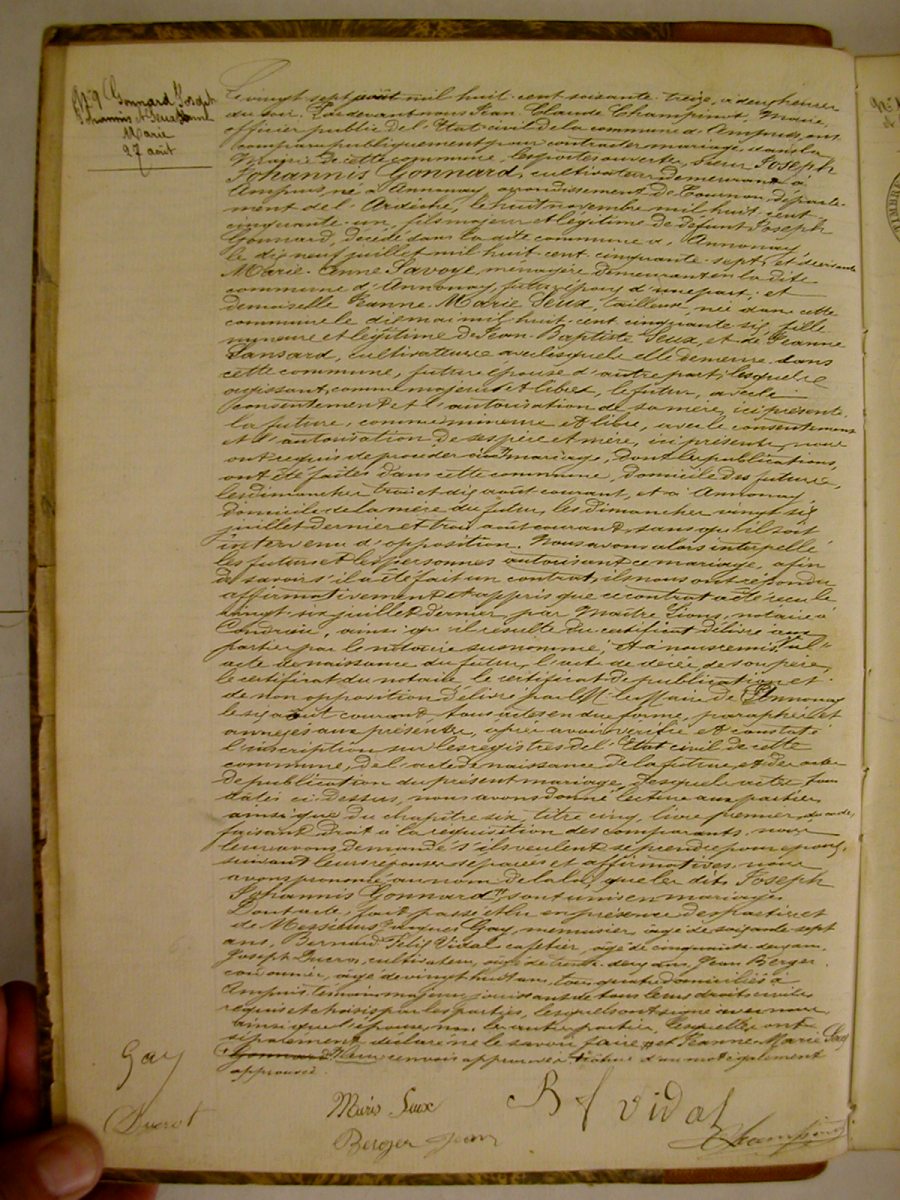 N° 9 Gonnard Joseph
Johannis et Seux Jeanne
Marie
27 août
Le vingt sept août mil huit cent soixante treize, à deux heures
du soir. Pardevant nous Jean Claude Champinot, Maire,
officier public de l'Etat civil de la commune d'Ampuis, ont
comparu publiquement pour contracter mariage, dans la
Mairie de cette commune, les portes ouvertes, sieur Joseph
Johannis Gonnard, cultivateur demeurant à
Ampuis, né à Annonay, arrondissement de Tournon, départe-
ment de l'Ardèche, le huit novembre mil huit cent
cinquante-un, fils majeur et légitime de défunt Joseph
Gonnard, décédé dans la dite commune d'Annonay
le dix neuf juillet mil huit cent cinquante sept, et de vivante
Marie-Anne Savoye ménagère demeurant en la dite
commune d'Annonay, futur époux d'une part, et
demoiselle Jeanne-Marie Seux, tailleuse, née dans cette
commune le dix mai mil huit cent cinquante six, fille
mineure et légitime de Jean Baptiste Seux, et de Jeanne
Sansard, cultivateurs avec lesquels elle demeure dans
cette commune, future épouse d'autre part; lesquels
agissant, comme majeur et libre, le futur, avec le
consentement et l'autorisation de sa mère, ici présente,
la future, comme mineure et libre, avec le consentement
et l'autorisation de ses père et mère, ici présents, nous
ont requis de procéder à leur mariage, dont les publications,
ont été faites dans cette commune, domicile des futurs,
les dimanches trois et dix août courant, et à Annonay,
domicile de la mère du futur, les dimanches vingt six
juillet dernier et trois août courant, sans qu'il soit
intervenu d'opposition. Nous avons alors interpellé
les futurs et les personnes autorisant ce mariage, afin
de savoir s'il a été fait un contrat, ils nous ont répondu
affirmativement et appris que ce contrat a été reçu le
vingt-six juillet dernier, par Maître Lions, notaire à
Condrieu, ainsi qu'il résulte du certificat délivré aux
parties par le notaire susnommé, et à nous remis. Vu l'
acte de naissance du futur, l'acte de décès, de son père,
le certificat du notaire, le certificat de publication et
de non opposition délivré par M. le Maire de Annonay
le six août courant, tous actes en due forme, paraphés et
annexés aux présentes, après avoir vérifié et constaté
l'inscription sur les registres de l'Etat civil de cette
commune, de l'acte de naissance de la future, et des actes
de publication du présent mariage, desquels actes tous
datés ci-dessus, nous avons donné lecture aux parties,
ainsi que du chapitre six, titre cinq, livre premier, du code,
faisant droit à la réquisition des comparants, nous
leur avons demandé s'ils veulent se prendre pour époux,
suivant leurs réponses séparées et affirmatives, nous
avons prononcé au nom de la loi, que les dits Joseph
Johannis Gonnard sont unis en mariage.
Dont acte, fait passé et lu en présence des parties et
de Messieurs Jacques Gay, menuisier, âgé de soixante-sept
ans, Bernard Félix Vidal cafetier, âgé de cinquante-deux ans,
Joseph Ducros, cultivateur, âgé de trente-deux ans, Jean Berger
cordonnier, âgé de vingt huit ans, tous quatre domiciliés à
Ampuis témoins majeurs, jouissant de tous leurs droits civils,
requis et choisis par les parties, lesquels ont signé avec nous
ainsi que l'épouse, non les autres parties, lesquelles ont
séparément déclaré ne le savoir faire, et Jeanne-Marie Seux
renvois approuvé. rature d'un mot également
approuvée.
Gay
Ducrot
Maris Seux
Berger Jean
B f vidal
Champinot